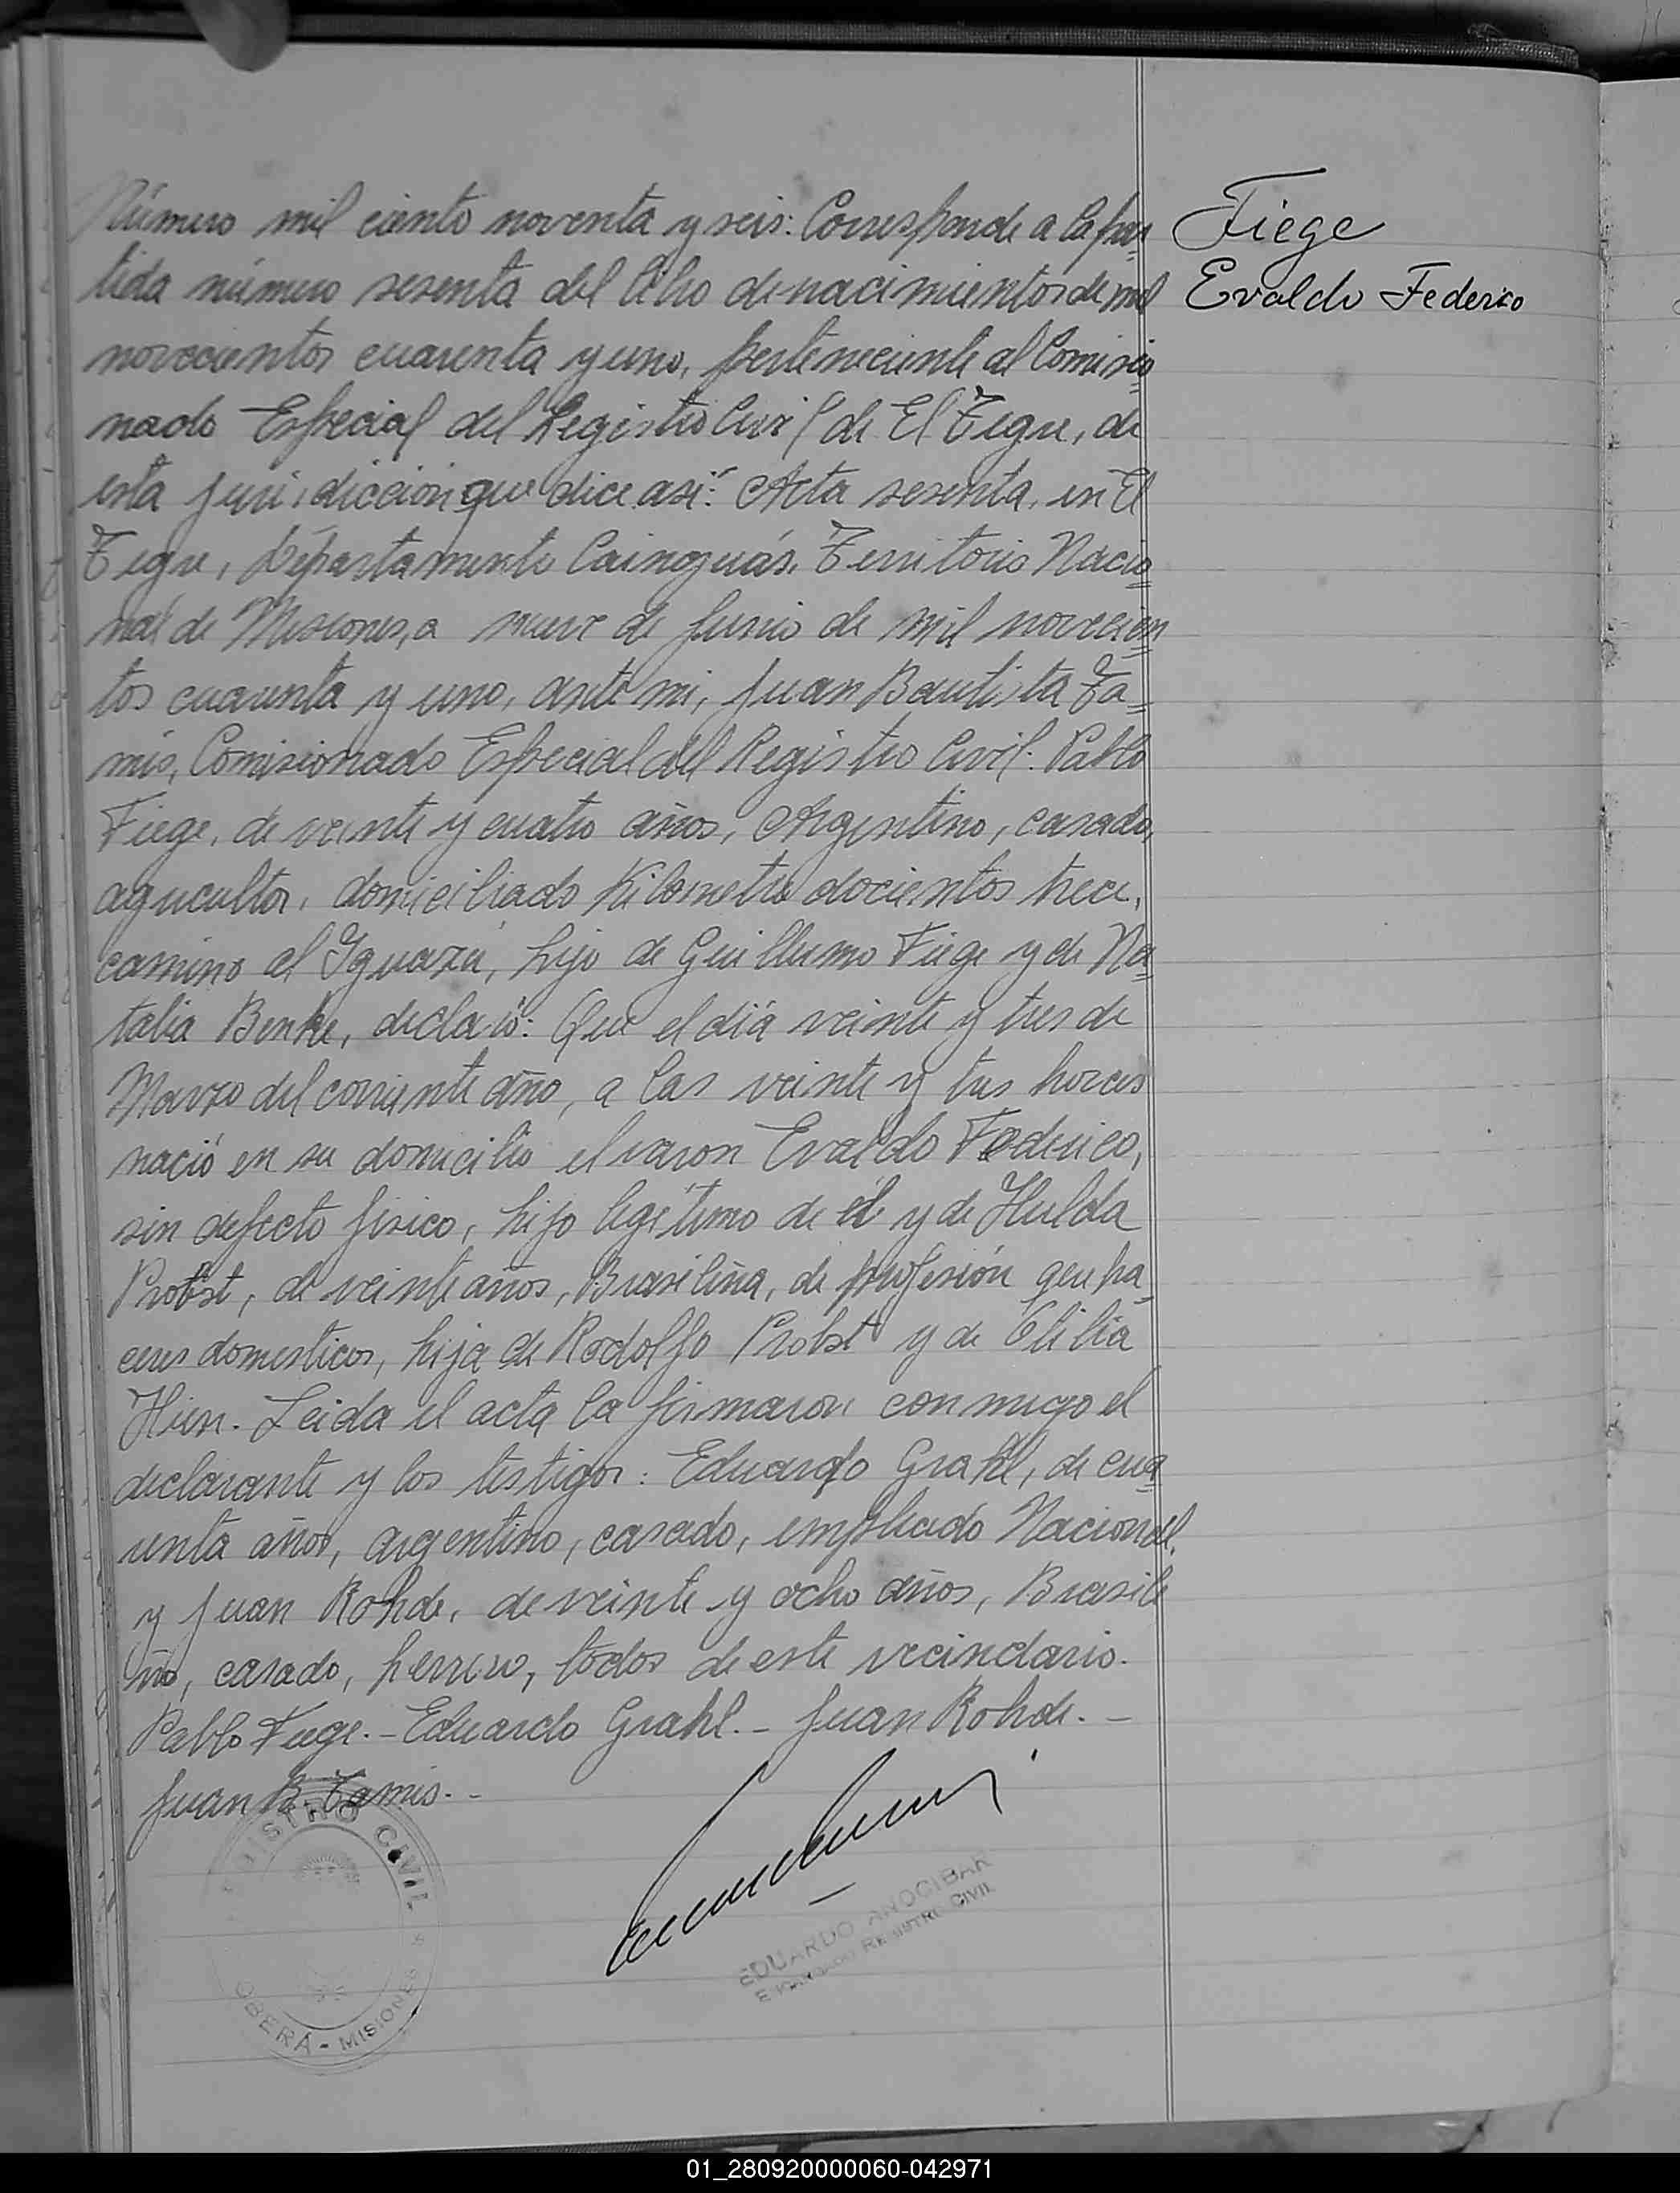 Número mil ciento noventa y seis: Corresponde a la par=
tida número sesenta del libro de nacimientos de mil
novecientos cuarenta y uno, perteneciente al Comisio=
nado Especial del Registro Civil de El Tigre, de
esta jurisdicción que dice así: Acta sesenta, en El
Tigre, Departamento Cainguás, Territorio Nacio=
nal de Misiones, a nueve de Junio de mil novecien=
tos cuarenta y uno, ante mi, Juan Bautista Ta=
mis, Comisionado Especial del Registro Civil: Pablo
Fiege, de veinte y cuatro años, Argentino, casado,
agricultor, domiciliado Kilometro docientos trece,
camino al Iguazú, hijo de Guillermo Fiege y de Na=
talia Benke, declaró: Que el día veinte y tres de
Marzo del corriente año, a las veinte y tres horas
nació en su domicilio el varon Evaldo Federico,
sin defecto físico, hijo legítimo de él y de Hulda
Probst, de veinte años, Brasileña, de profesión queha=
ceres domesticos, hija de Rodolfo Probst y de
Hien. Leida el acta la firmaron conmigo el
declarante y los testigos: Eduardo Grahl, de cua=
renta años, argentino, casado, empleado Nacional,
y Juan Rohde, de veinte y ocho años, Brasile
ño, casado, herrero, todos de este vecindario.
Pablo Fiege.- Eduardo Grahl.- Juan Rohde.-
Juan B. Tamis.-
Fiege
Evaldo Federico
REGISTRO CIVIL
OBERÁ - MISIONES
EDUARDO ANOCIBAR
ENCARGADO REGISTRO CIVIL
01_280920000060-042971